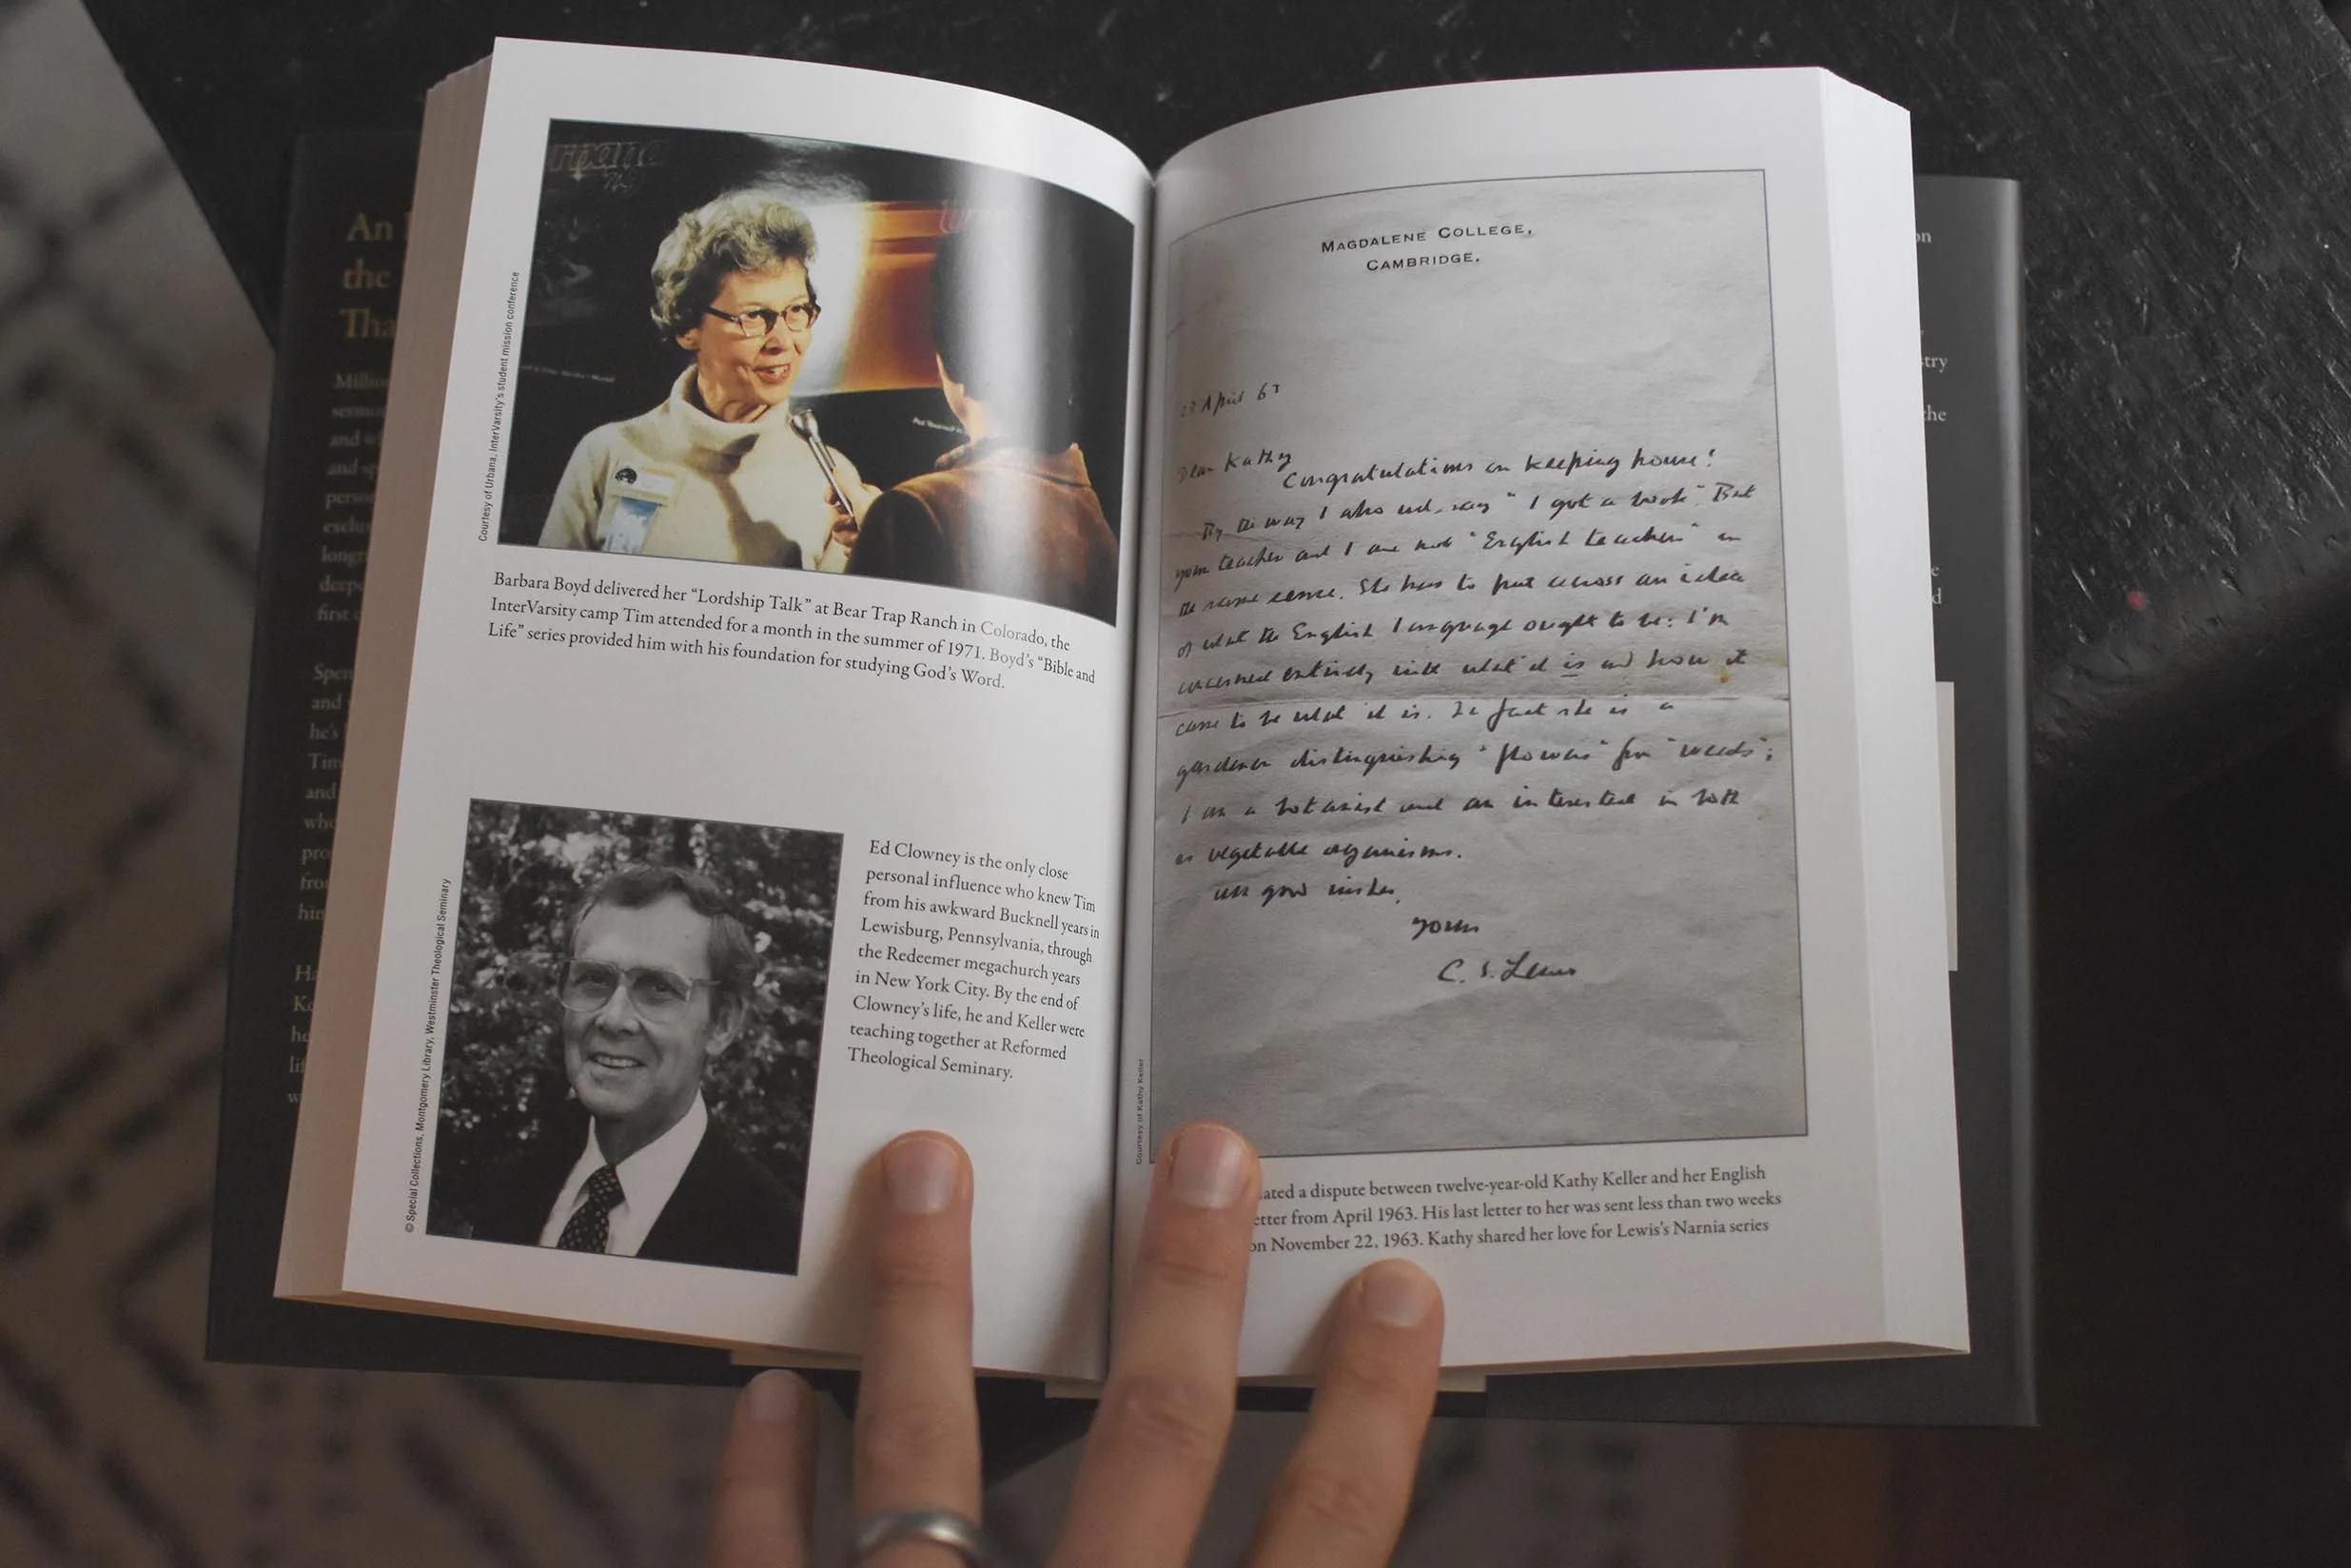 An
the
Tha
Millio
sermo
and w
and sp
perso
exclu
longt
deepe
first c
Spen
and
he's
Tim
and
who
pro
fro
him
Ha
Ke
he
lif
w
rbana
Courtesy of Urbana, InterVarsity's student mission conference
Barbara Boyd delivered her “Lordship Talk” at Bear Trap Ranch in Colorado, the
InterVarsity camp Tim attended for a month in the summer of 1971. Boyd’s “Bible and
Life” series provided him with his foundation for studying God’s Word.
© Special Collections, Montgomery Library, Westminster Theological Seminary
Ed Clowney is the only close
personal influence who knew Tim
from his awkward Bucknell years in
Lewisburg, Pennsylvania, through
the Redeemer megachurch years
in New York City. By the end of
Clowney’s life, he and Keller were
teaching together at Reformed
Theological Seminary.
MAGDALENE COLLEGE,
CAMBRIDGE.
April 63
Dear Kathy
Congratulations on keeping house!
By the way I also wd. say “I got a book”. But
your teacher and I are not “English teachers” in
the same sense. She has to put across an idea
of what the English language ought to be: I'm
concerned entirely with what it is and how it
came to be what it is. In fact she is a
gardener distinguishing “flowers” from “weeds”;
I am a botanist and am interested in both
as vegetable organisms.
All good wishes,
yours
C. S. Lewis
Courtesy of Kathy Keller
ated a dispute between twelve-year-old Kathy Keller and her English
etter from April 1963. His last letter to her was sent less than two weeks
on November 22, 1963. Kathy shared her love for Lewis’s Narnia series
on
stry
the
e
d